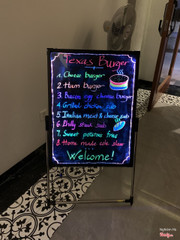 Texas Burger
1. Cheese burger
2. Ham Burger
3. Bacon egg cheese burger
4. Grilled chicken sub
5. Italian meat & cheese sub
6. Philly steak sub
7. Sweet potatoes fries
8. Home made cole slaw
Welcome!